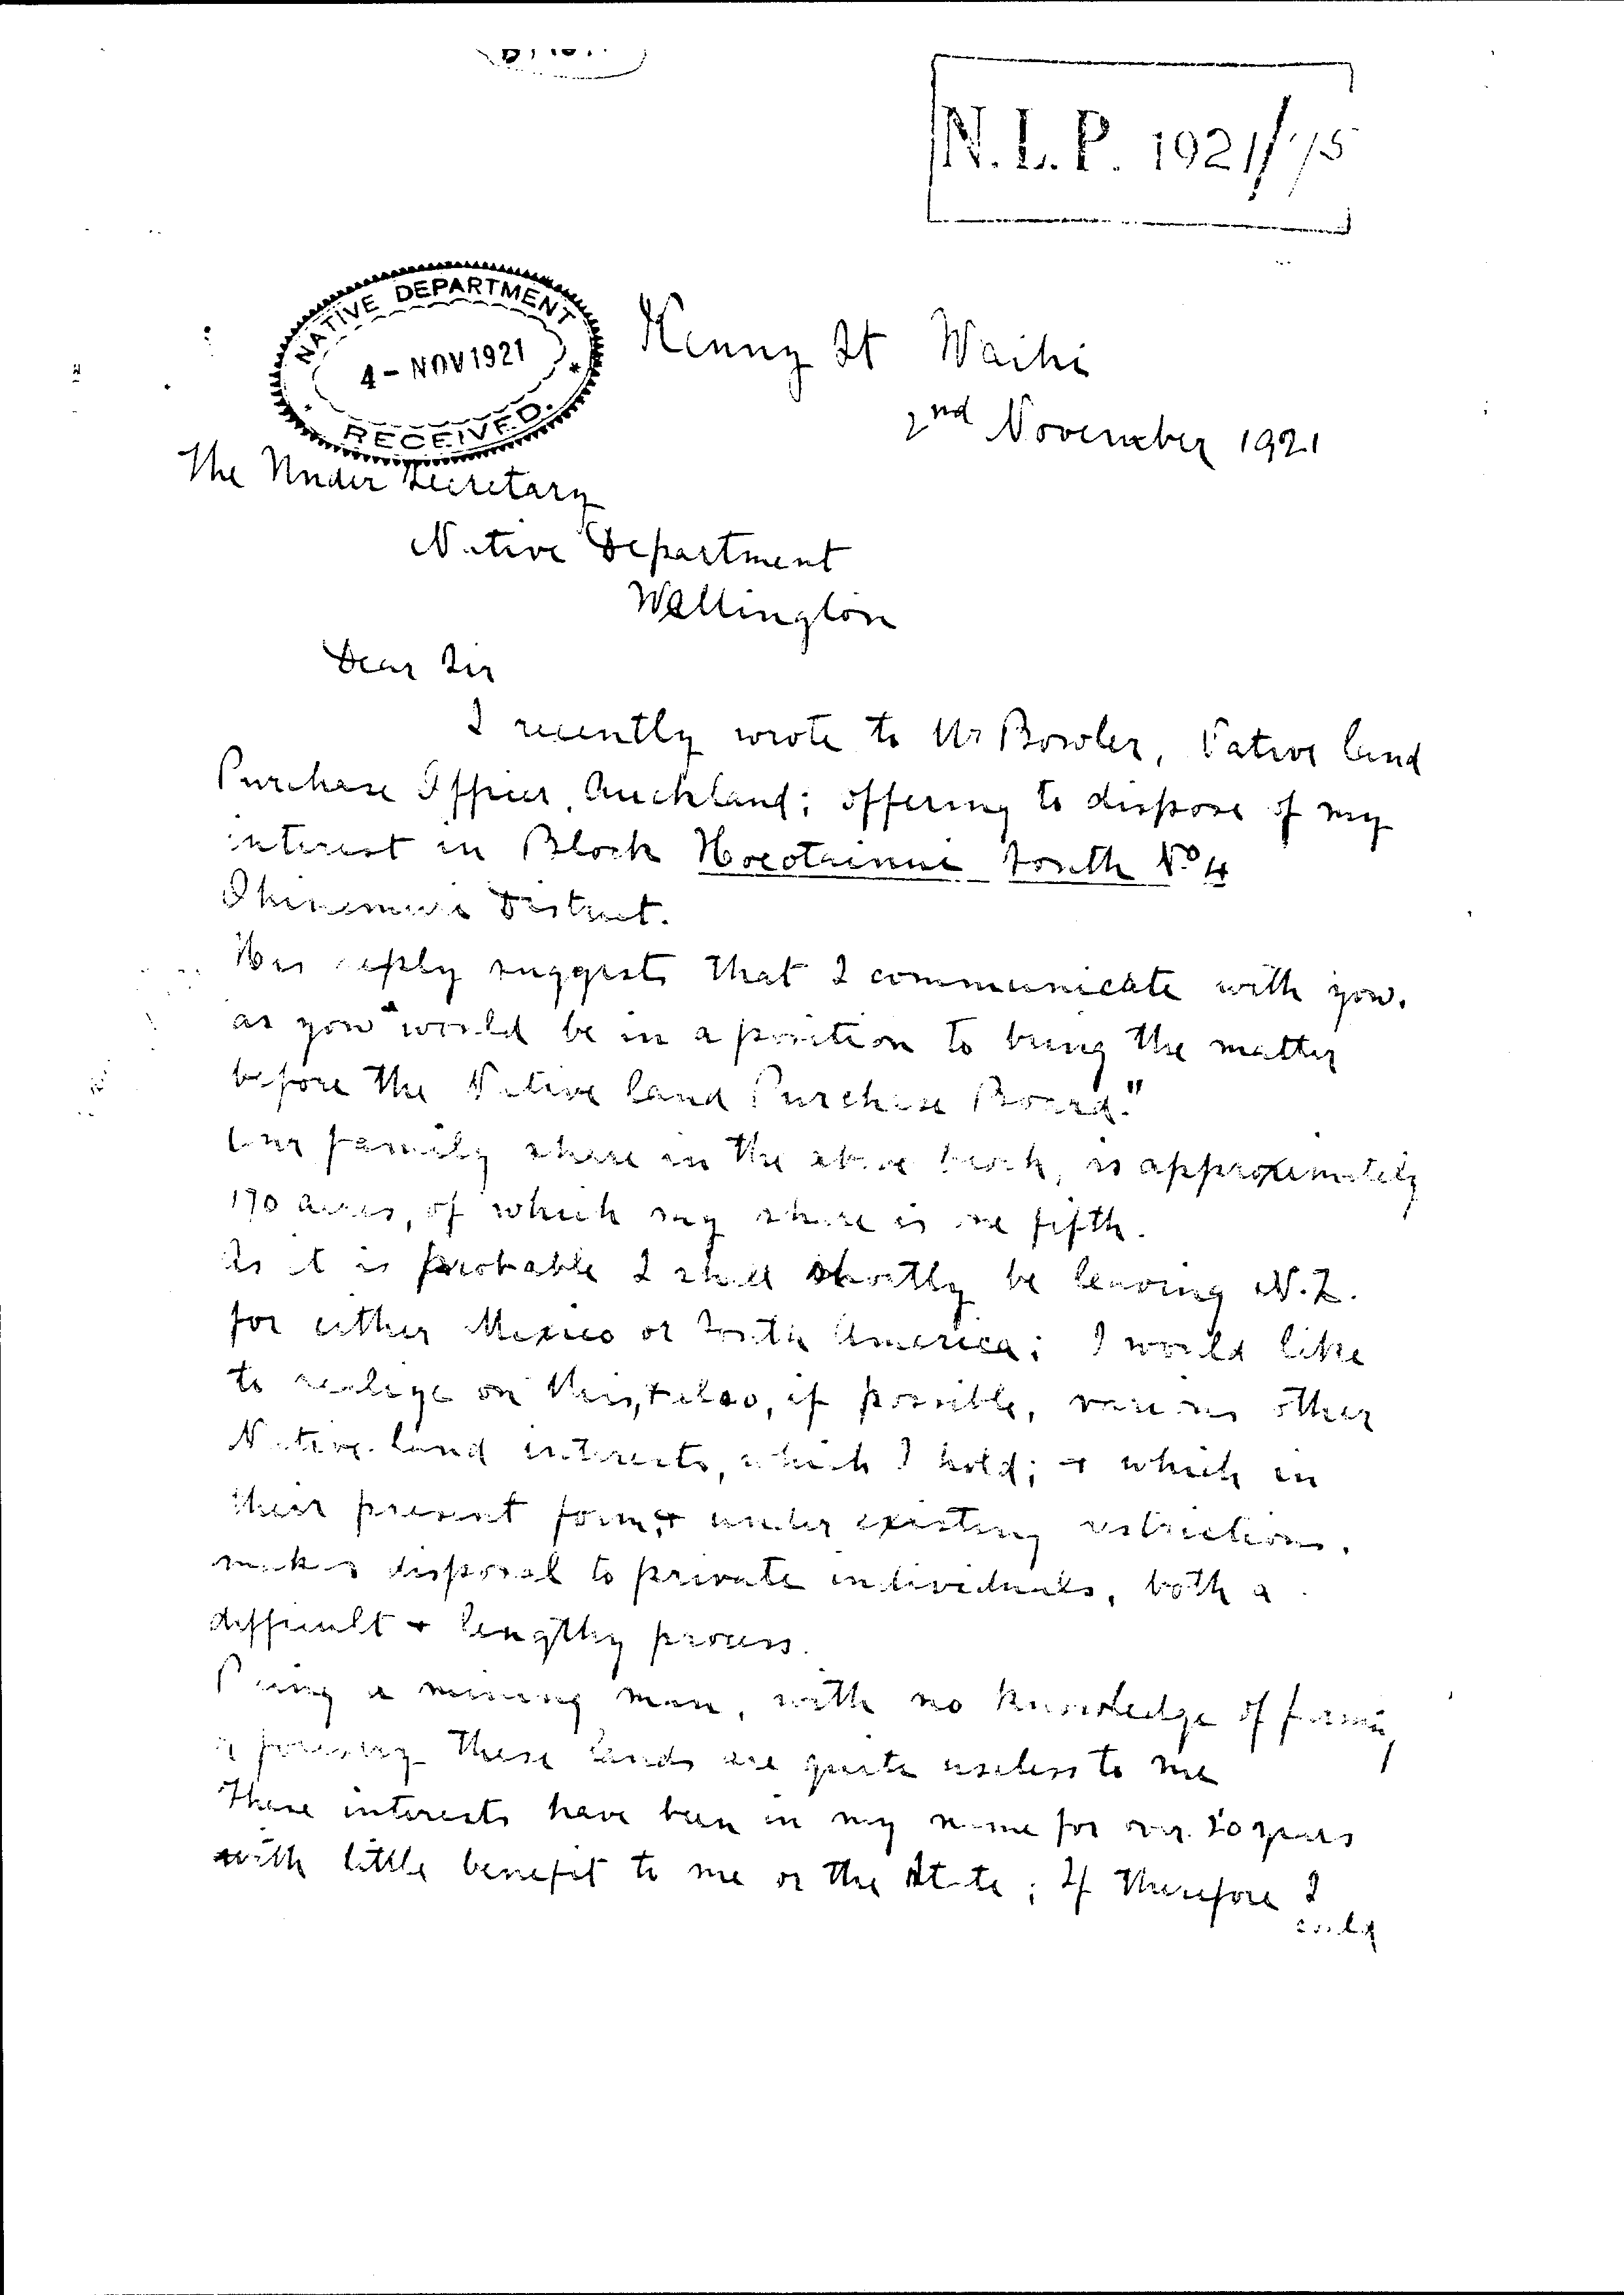 N.L.P. 1921/75
NATIVE DEPARTMENT
4 - NOV 1921
RECEIVED.
Kenny St Waihi
2nd November 1921
The Under Secretary
Native Department
Wellington
Dear Sir
I recently wrote to Mr Bowler, Native land
Purchase Officer, Auckland; offering to dispose of my
interest in Block Hocotainui South No 4
Ohinemuri District.
His reply suggests that I communicate with you.
as you "would be in a position to bring the matter
before the Native land Purchase Board."
Our family share in the above block, is approximately
170 acres, of which my share is one fifth.
As it is probable I shall shortly be leaving N.Z.
for either Mexico or South America; I would like
to realize on this, + also, if possible, various other
Native land interests, which I hold; + which in
their present form, + under existing restrictions.
makes disposal to private individuals, both a
difficult + lengthy process.
Being a mining man, with no knowledge of farming
or forestry these lands are quite useless to me
These interests have been in my name for over years
with little benefit to me or the State; If therefore I
could